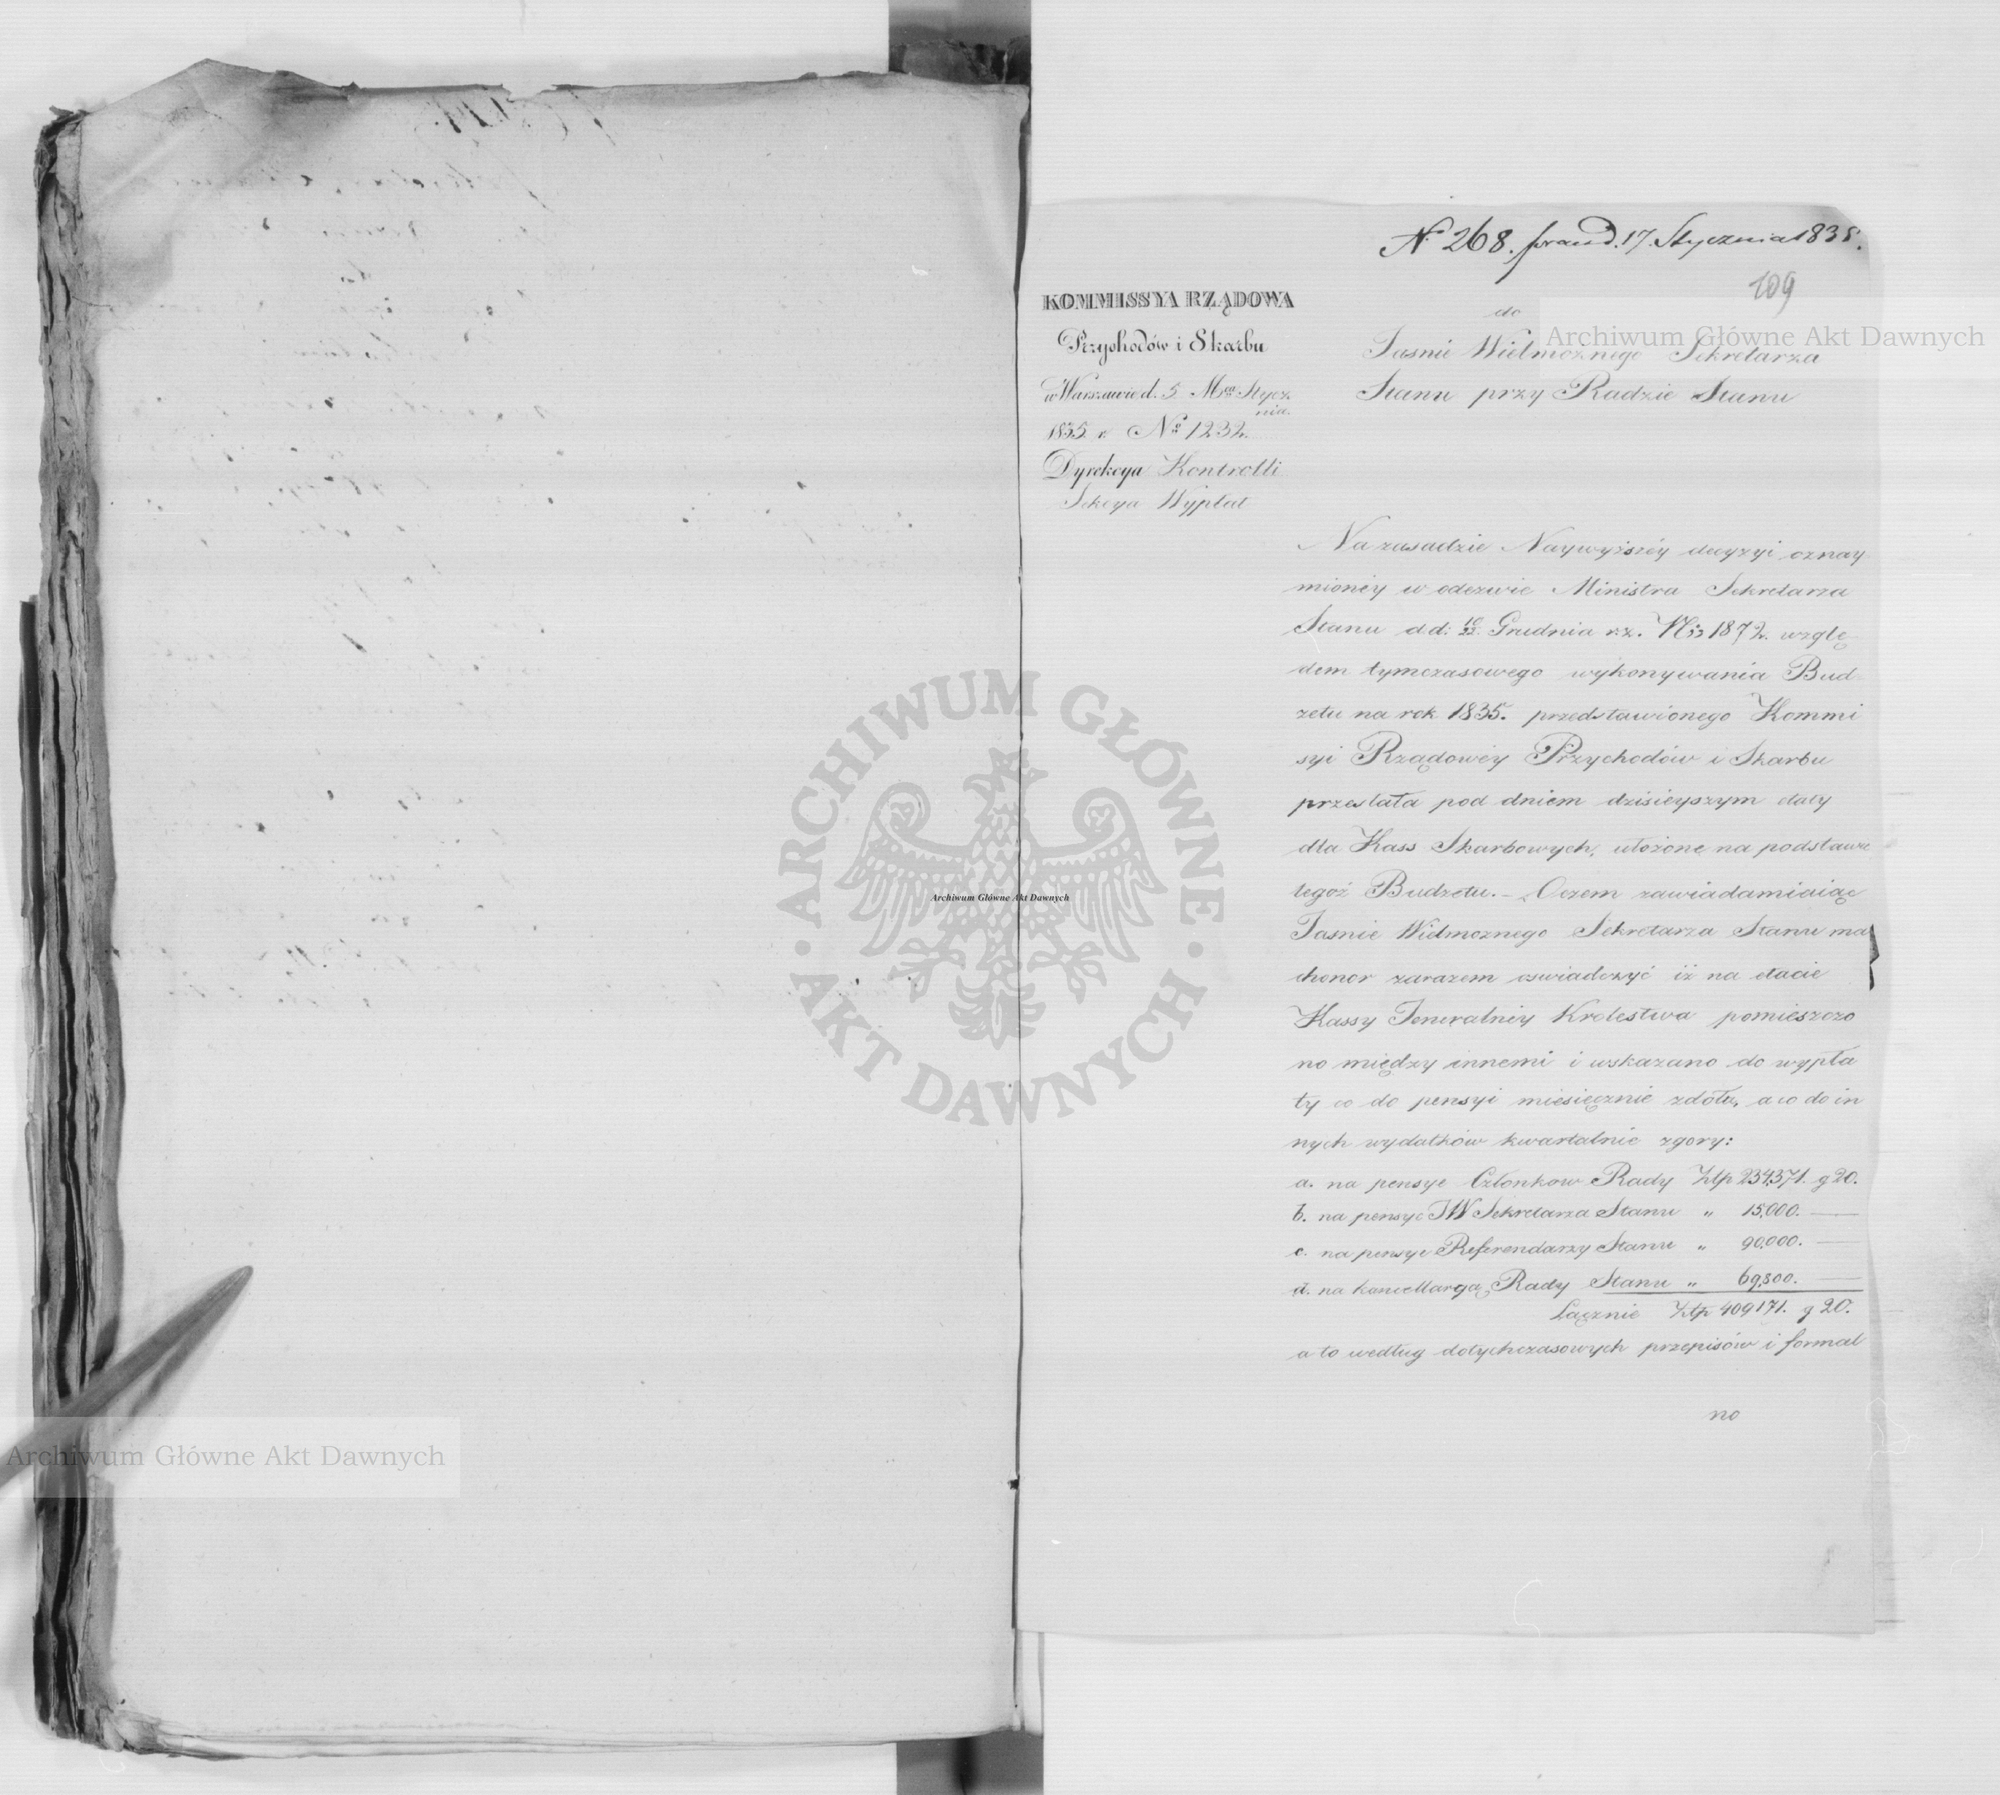 N 268. praes d. 17. Stycznia 1835.
109
KOMMISSYA RZĄDOWA
Przychodów i Skarbu
w Warszawie d. 5 Mca Stycz
nia.
1835 r. No 1232.
Dyrekcya Kontrolli
Sekcya Wypłat
do
Jasnie Wielmożnego Sekretarza
Stanu przy Radzie Stanu
Na zasadzie Naywyższéy decyzyi oznay
mionéy w odezwie Ministra Sekretarza
Stanu d d: 10/22 Grudnia r. z. No 1872. wzglę
dem tymczasowego wykonywania Bud
zetu na rok 1835. przedstawionego Kommi
syi Rządowéy Przychodów i Skarbu
przesłała pod dniem dzisieyszym etaty
dla Kass Skarbowych, ułożone na podstawie
tegoż Budzetu. – Oczem zawiadamiaiąc
Jasnie Wielmoznego Sekretarza Stanu ma
honor zarazem oswiadczyć iż na etacie
Kassy Jeneralnéy Krolestwa pomieszczo
no między innemi i wskazano do wypła
ty co do pensyi miesięcznie zdołu, a co do in
nych wydatków kwartalnie zgory:
a. na pensye Członkow Rady Złp 234,371. g 20.
b. na pensye JW Sekretarza Stanu " 15,000. —
c. na pensye Referendarzy Stanu " 90,000. —
d. na kancellaryą Rady Stanu " 69,800. —
Łącznie Złp 409171. g 20.
a to według dotychczasowych przepisów i formal
no
Archiwum Główne Akt Dawnych
Archiwum Główne Akt Dawnych
Archiwum Główne Akt Dawnych
ARCHIWUM GŁÓWNE
AKT DAWNYCH